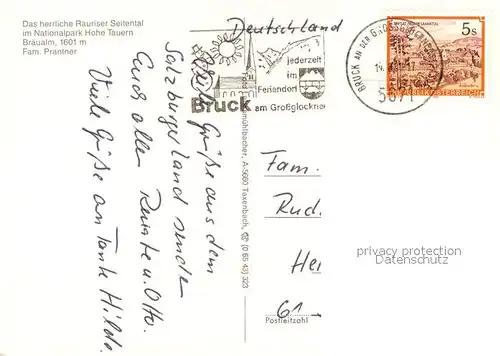 Das herrliche Rauriser Seitental
im Nationalpark Hohe Tauern
Bräualm, 1601 m
Fam. Prantner
Deutschland
jederzeit
im
Feriendorf
Bruck
am Großglockner
BRUCK AN DER GROSSGLOCKNERSTR.
5671
5s
REPUBLIK ÖSTERREICH
Viele Grüße aus dem
Salzburgerland senden
Euch allen Reinte u. Otto.
Viele Grüße an Tante Hilda.
A-5660 Taxenbach, ☎ (0 65 43) 323
Fam.
Rud.
Hei
61
Postleitzahl
privacy protection
Datenschutz